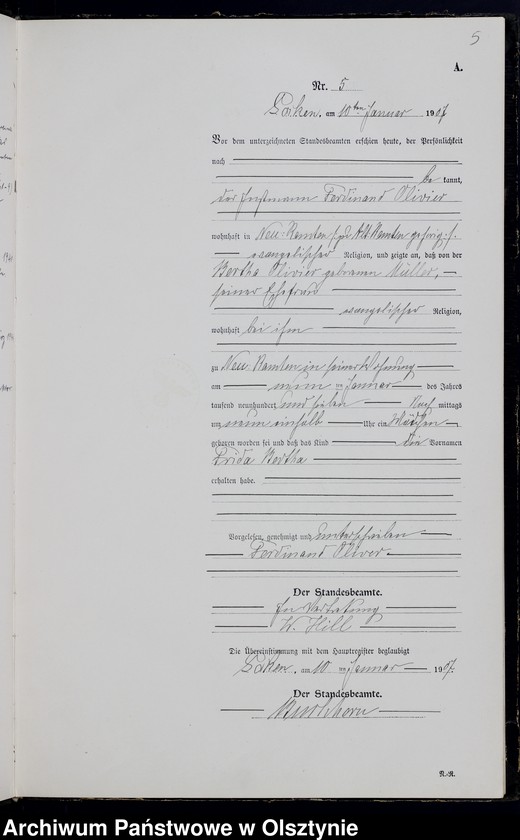 5
A.
Nr. 5
am 10ten Januar 1907
Vor dem unterzeichneten Standesbeamten erschien heute, der Persönlichkeit
nach
be kannt,
der Instmann Ferdinand Olivier
wohnhaft in Neu-Ramten
evangelischer Religion, und zeigte an, daß von der
Bertha Olivier geborenen Müller,
seiner Ehefrau
evangelischer Religion,
wohnhaft bei ihm
zu Neu-Ramten in seiner Wohnung
am neun ten Januar des Jahres
tausend neunhundert und sieben Nach mittags
um neun einhalb Uhr ein Mädchen
geboren worden sei und daß das Kind die Vornamen
Frida Bertha
erhalten habe.
Vorgelesen, genehmigt und unterschrieben
Ferdinand Olivier
Der Standesbeamte.
In Vertretung
W. Hill
Die Übereinstimmung mit dem Hauptregister beglaubigt
am 10 ten Januar 1907.
Der Standesbeamte.
N.-R.
Archiwum Państwowe w Olsztynie